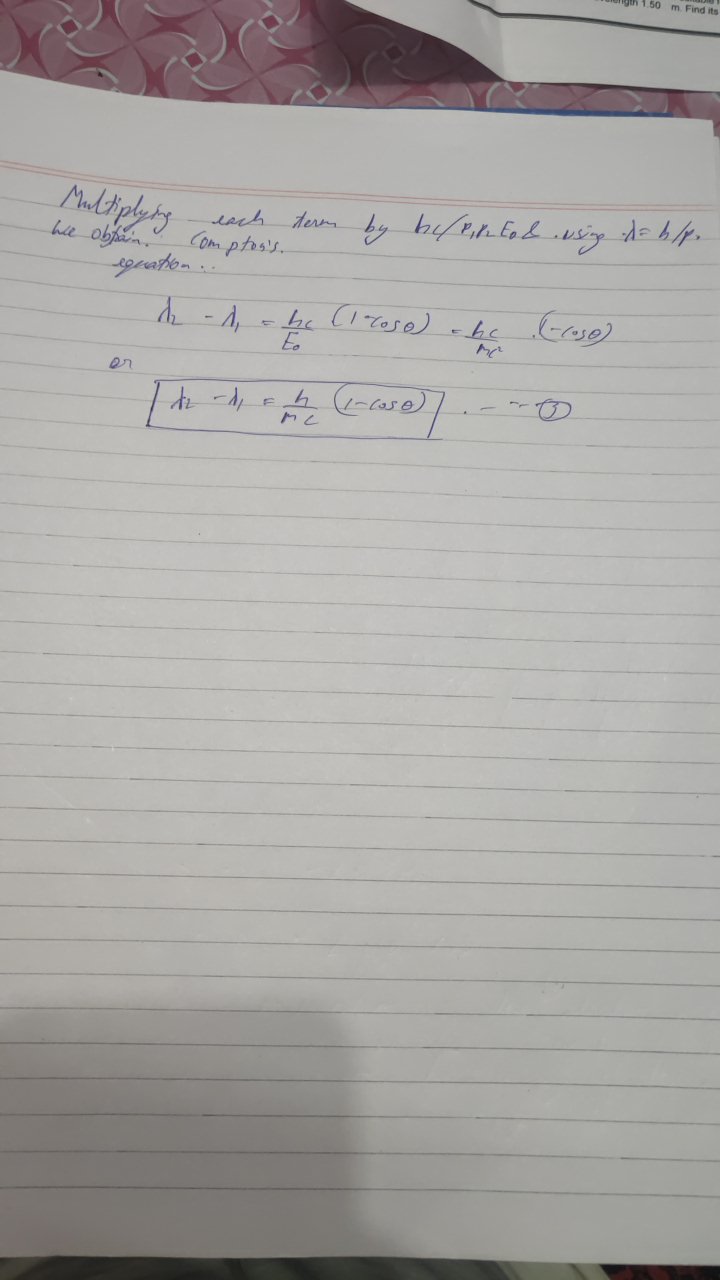 length 1.50 m. Find its
Multiplying each term by hc/P₁P₂E₀ & using λ = h/p.
we obtain. Compton's.
equation..
λ₂ - λ₁ = hc/E₀ (1-cosθ) = hc/mc² .(-cosθ)
or
λ₂ - λ₁ = h/mc (1-cosθ) . - -- ③